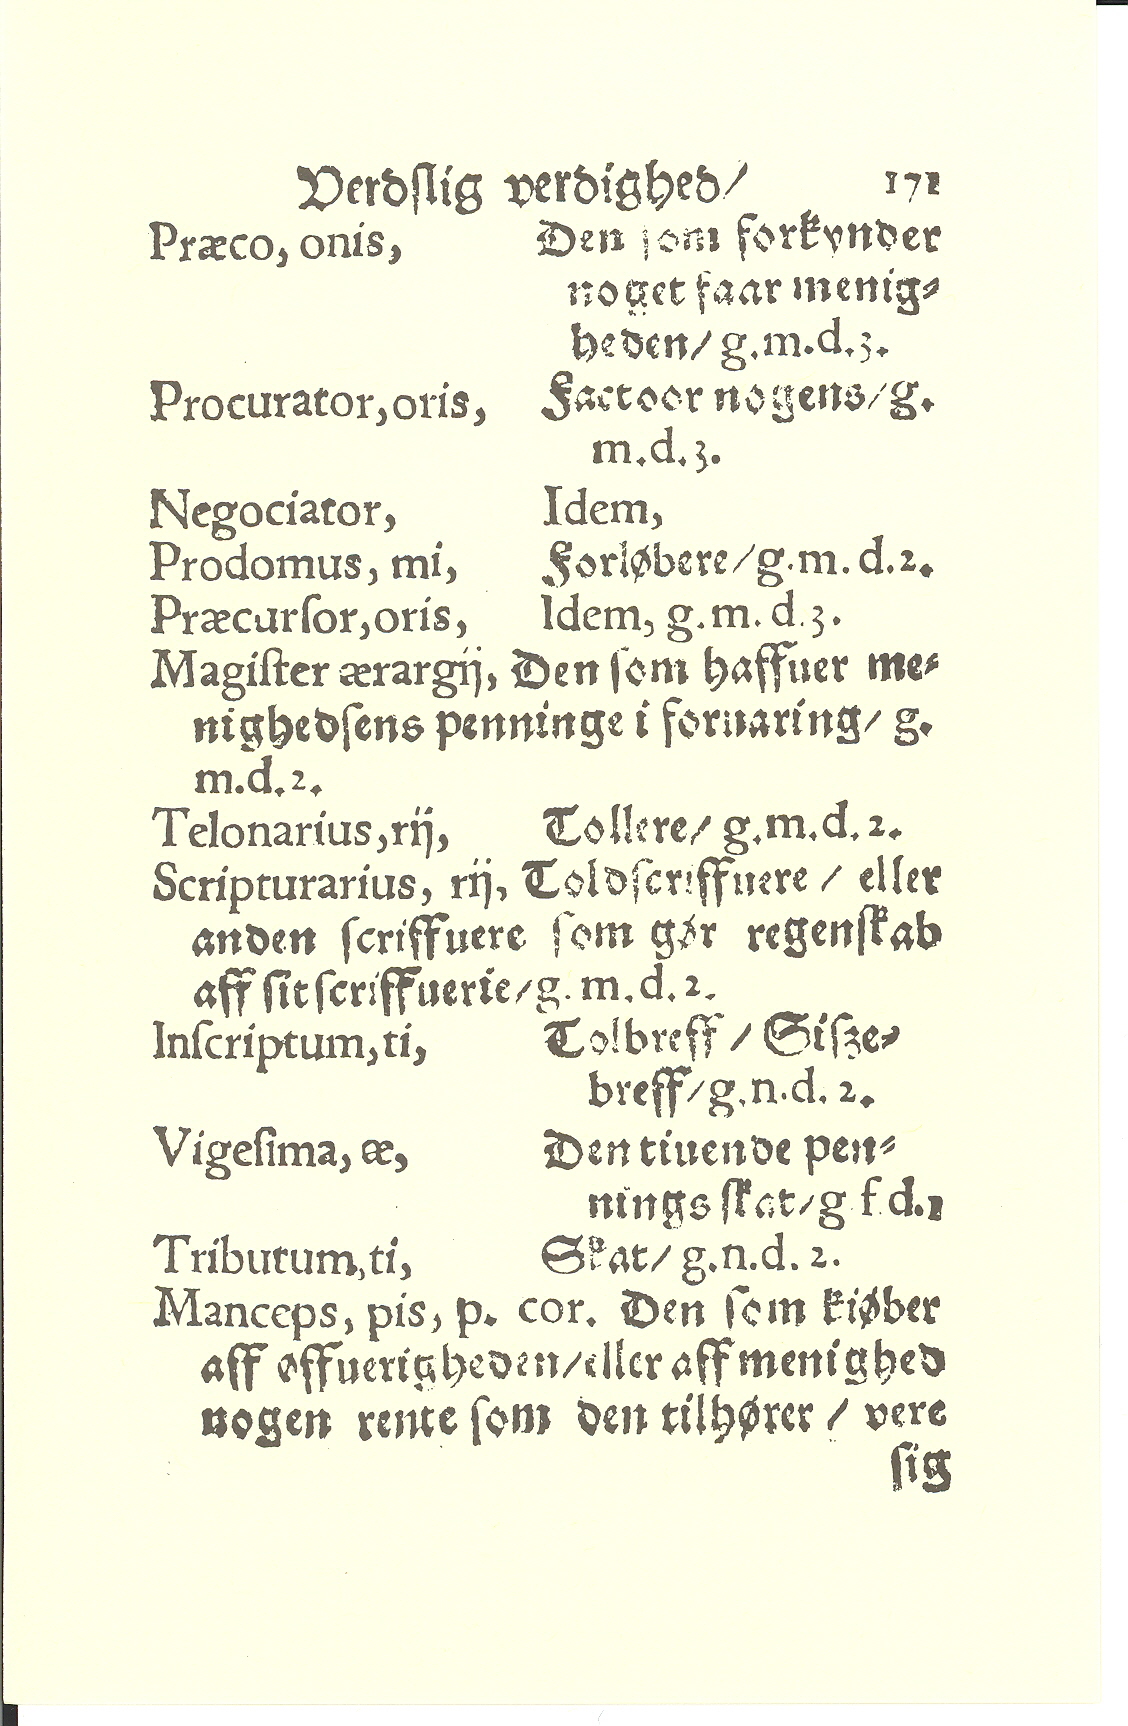 Verdſlig verdighed/ 171
Præco, onis, Den ſom forkynder
noget faar menig⸗
heden/ g.m.d.3.
Procurator,oris, Factoor nogens/g.
m.d.3.
Negociator, Idem,
Prodomus, mi, Forløbere/g.m.d.2.
Præcurſor,oris, Idem, g.m.d.3.
Magiſter ærargij, Den ſom haffuer me⸗
nighedſens penninge i foruaring/ g.
m.d.2.
Telonarius,rij, Tollere/ g.m.d.2.
Scripturarius, rij, Toldſcriffuere / eller
anden ſcriffuere ſom gør regenſkab
aff ſit ſcriffuerie/g.m.d.2.
Inſcriptum,ti, Tolbreff / Siſze⸗
breff/g.n.d.2.
Vigeſima, æ, Den tiuende pen⸗
nings ſkat/g f d.1
Tributum,ti, Skat/ g.n.d.2.
Manceps, pis, p. cor. Den ſom kiøber
aff øffuerigheden/eller aff menighed
nogen rente ſom den tilhører / vere
ſig